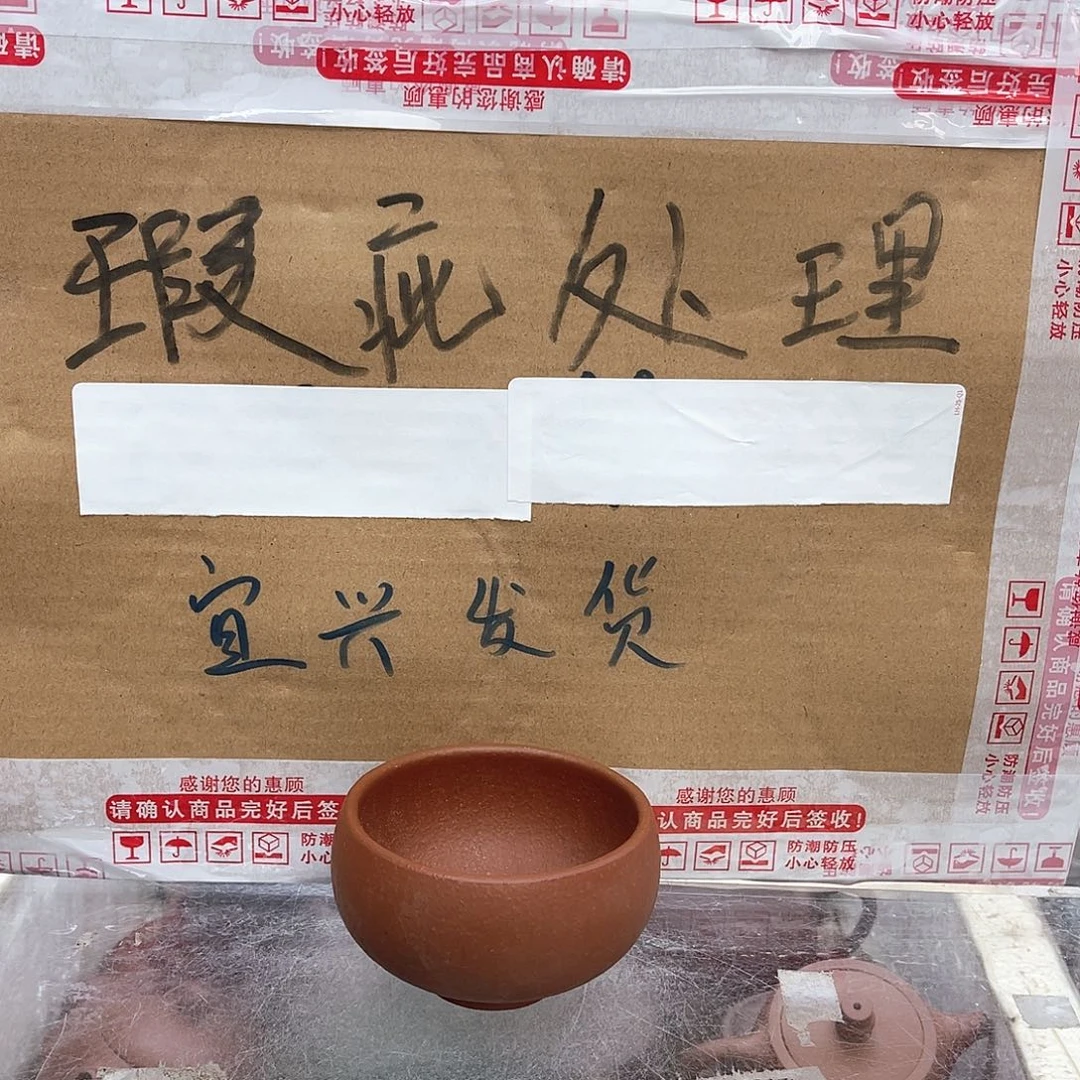 小心轻放
防潮防压
小心轻放
请
请确认商品完好后签收!
完好后签收!
感谢您的惠顾
瑕疵处理
宜兴发货
小心轻放
请确认商品完好后签收!
防潮防压
小心轻放
感谢您的惠顾
感谢您的惠顾
请确认商品完好后签
认商品完好后签收!
防潮
小心
防潮防压
小心轻放